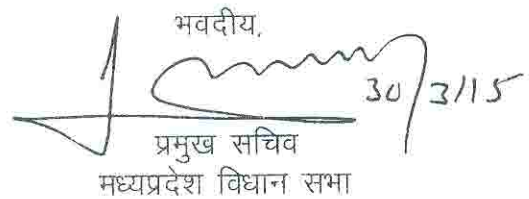 भवदीय,
30/3/15
प्रमुख सचिव
मध्यप्रदेश विधान सभा